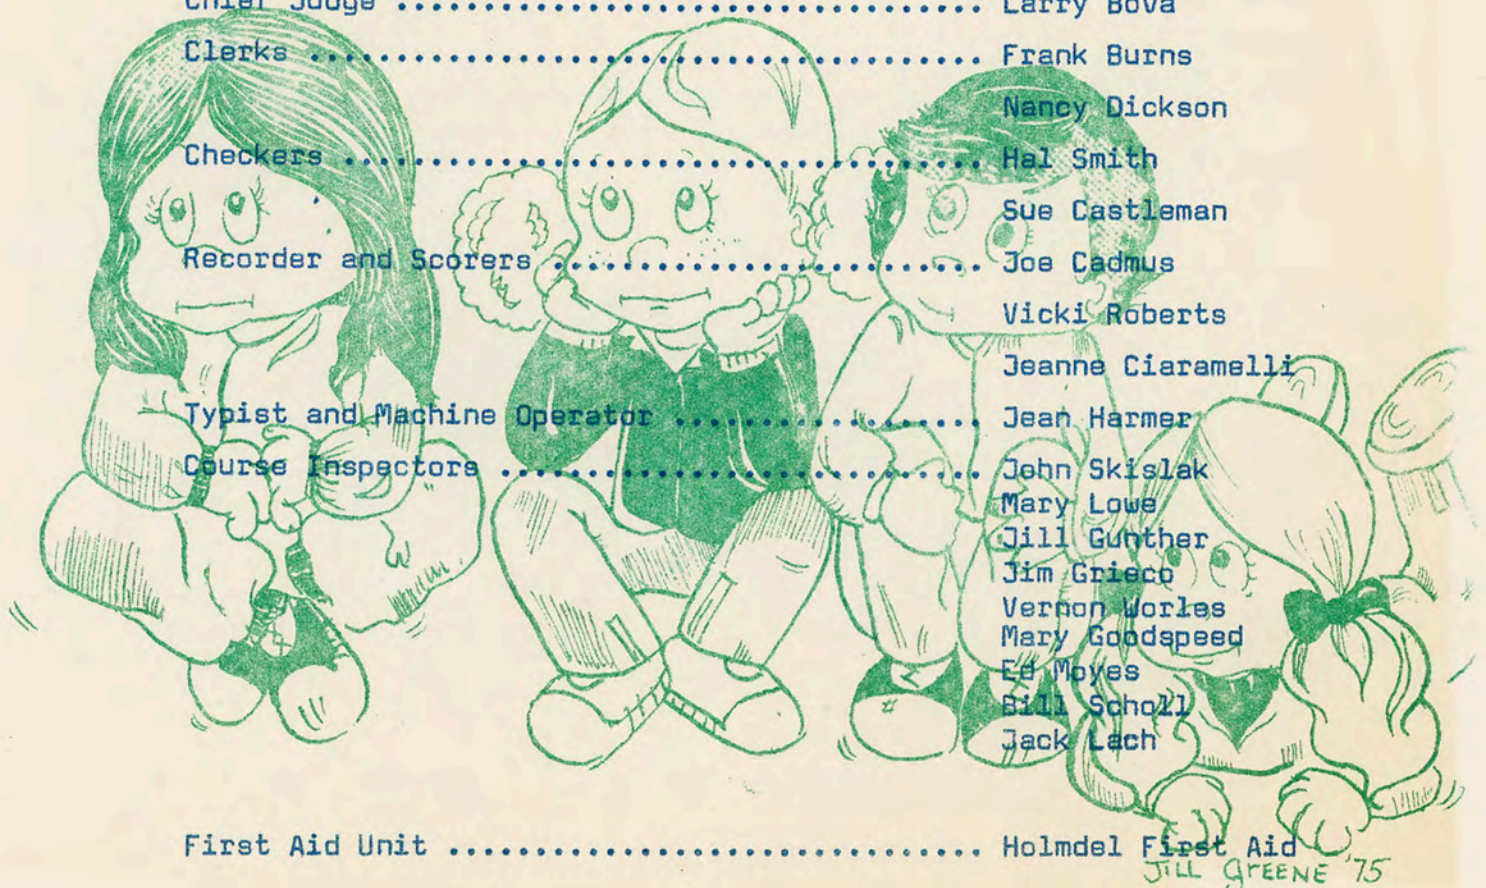 Chief Judge .................................. Larry Bova
Clerks ....................................... Frank Burns
Nancy Dickson
Checkers ..................................... Hal Smith
Sue Castleman
Recorder and Scorers ......................... Joe Cadmus
Vicki Roberts
Jeanne Ciaramelli
Typist and Machine Operator .................. Jean Harmer
Course Inspectors ............................ John Skislak
Mary Lowe
Jill Gunther
Jim Grieco
Vernon Worles
Mary Goodspeed
Ed Moyes
Bill Scholl
Jack Lach
First Aid Unit ............................... Holmdel First Aid
JILL GREENE '75